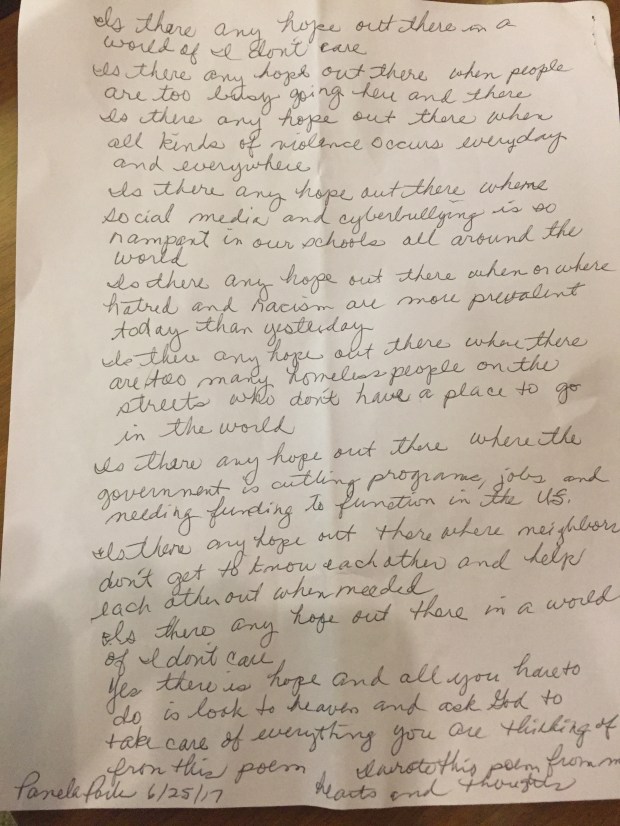 Is there any hope out there in a
world of I don't care
Is there any hope out there when people
are too busy going here and there
Is there any hope out there when
all kinds of violence occurs everyday
and everywhere
Is there any hope out there where
social media and cyberbullying is so
rampant in our schools all around the
world
Is there any hope out there when or where
hatred and racism are more prevalent
today than yesterday
Is there any hope out there where there
are too many homeless people on the
streets who don't have a place to go
in the world
Is there any hope out there where the
government is cutting programs, jobs, and
needing funding to function in the US.
Is there any hope out there where neighbors
don't get to know each other and help
each other out when needed
Is there any hope out there in a world
of I don't care
Yes there is hope and all you have to
do is look to heaven and ask God to
take care of everything you are thinking of
from this poem I wrote this poem from m
Pamela 6/25/17 hearts and thoughts